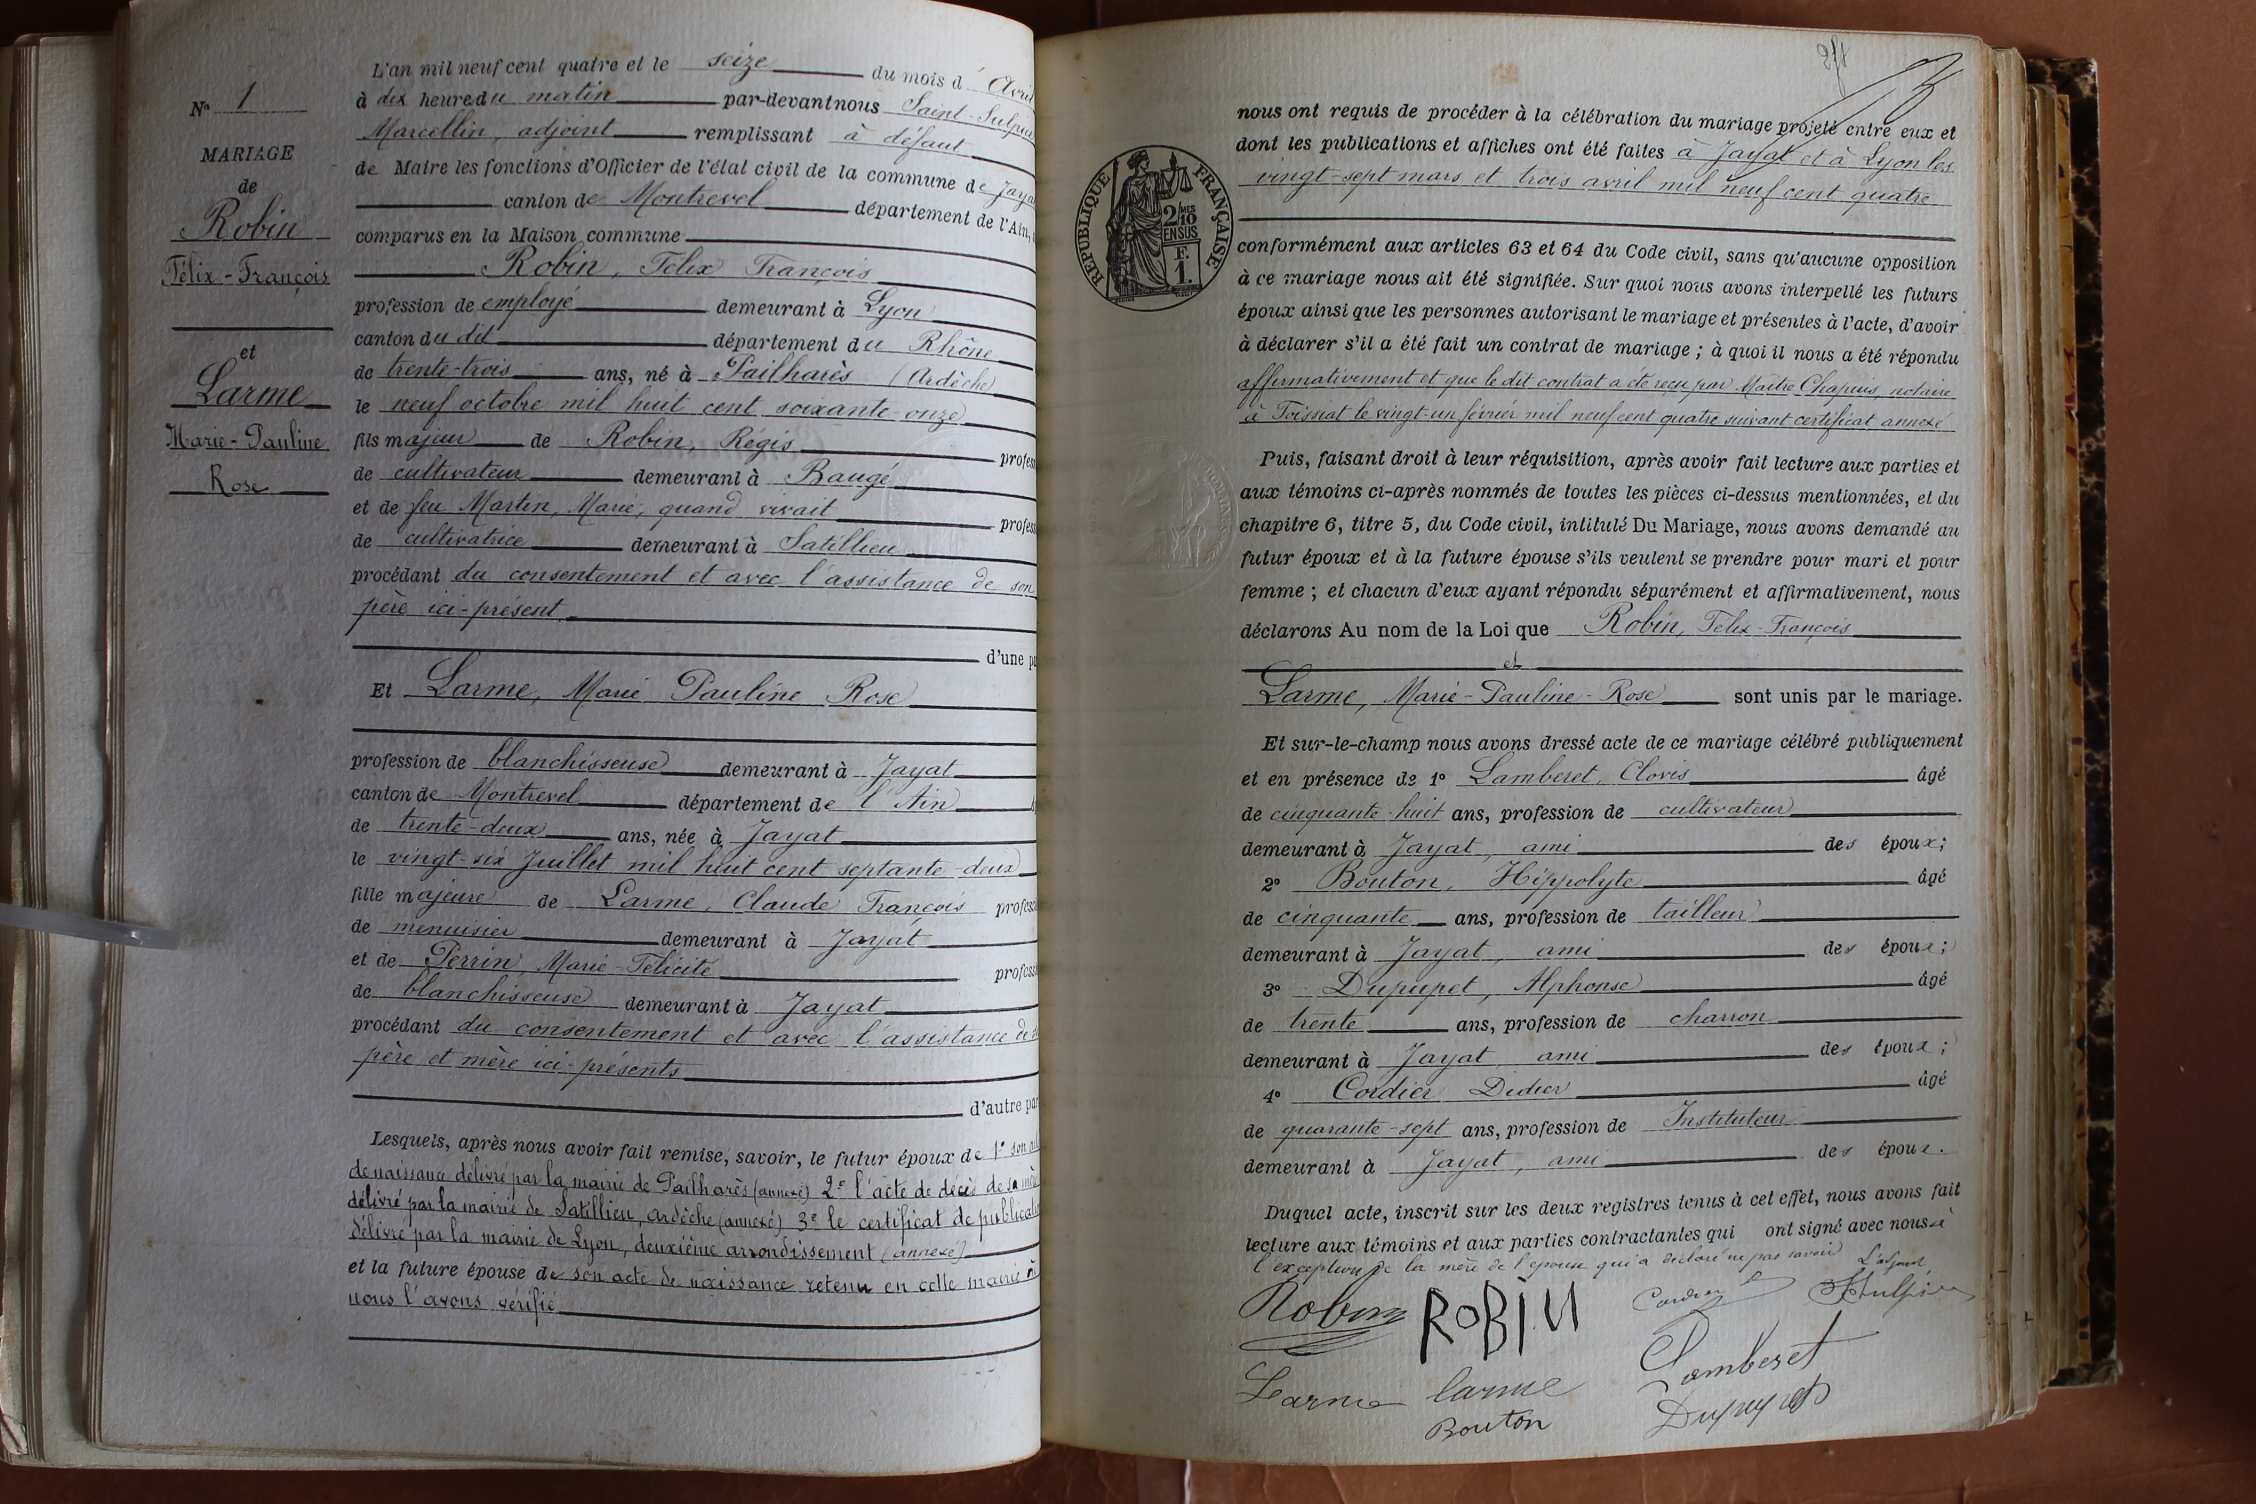 N° 1
MARIAGE
de
Robin
Félix-François
et
Larme
Marie-Pauline
Rose
L'an mil neuf cent quatre et le seize du mois d'Avril
à dix heures du matin par-devant nous Saint-Sulpice
Marcellin, adjoint remplissant à défaut
de Maire les fonctions d'Officier de l'état civil de la commune de Jayat
canton de Montrevel département de l'Ain,
comparus en la Maison commune
Robin, Felix François
profession de employé demeurant à Lyon
canton du dit département du Rhône
de trente-trois ans, né à Pailharès (Ardèche)
le neuf octobre mil huit cent soixante-onze
fils majeur de Robin, Régis profess
de cultivateur demeurant à Baugé
et de feu Martin, Marie, quand vivait profess
de cultivatrice demeurant à Satillieu
procédant du consentement et avec l'assistance de son
père ici-présent
d'une pa
Et Larme, Marie Pauline Rose
profession de blanchisseuse demeurant à Jayat
canton de Montrevel département de l'Ain
de trente-deux ans, née à Jayat
le vingt-six Juillet mil huit cent septante-deux
fille majeure de Larme, Claude François profess
de menuisier demeurant à Jayat
et de Perrin, Marie-Félicité profess
de blanchisseuse demeurant à Jayat
procédant du consentement et avec l'assistance de
père et mère ici-présents
d'autre par
Lesquels, après nous avoir fait remise, savoir, le futur époux de 1° son
de naissance délivré par la mairie de Pailharès (annexé) 2° l'acte de décès de sa
délivré par la mairie de Satillieu, ardèche (annexé) 3° le certificat de
délivré par la mairie de Lyon, deuxième arrondissement (annexé)
et la future épouse de son acte de naissance retenu en cette mairie
nous l'avons vérifié
nous ont requis de procéder à la célébration du mariage projeté entre eux et
dont les publications et affiches ont été faites à Jayat et à Lyon les
vingt-sept mars et trois avril mil neuf cent quatre
RÉPUBLIQUE FRANÇAISE
2/10 MES
EN SUS
F.
1.
conformément aux articles 63 et 64 du Code civil, sans qu'aucune opposition
à ce mariage nous ait été signifiée. Sur quoi nous avons interpellé les futurs
époux ainsi que les personnes autorisant le mariage et présentes à l'acte, d'avoir
à déclarer s'il a été fait un contrat de mariage ; à quoi il nous a été répondu
affirmativement et que le dit contrat a été reçu par Maître Chapuis notaire
à Foissiat le vingt-un février mil neuf cent quatre suivant certificat annexé
Puis, faisant droit à leur réquisition, après avoir fait lecture aux parties et
aux témoins ci-après nommés de toutes les pièces ci-dessus mentionnées, et du
chapitre 6, titre 5, du Code civil, intitulé Du Mariage, nous avons demandé au
futur époux et à la future épouse s'ils veulent se prendre pour mari et pour
femme ; et chacun d'eux ayant répondu séparément et affirmativement, nous
déclarons Au nom de la Loi que Robin, Felix-François
et
Larme, Marie-Pauline-Rose sont unis par le mariage.
Et sur-le-champ nous avons dressé acte de ce mariage célébré publiquement
et en présence de 1° Lamberet, Clovis âgé
de cinquante-huit ans, profession de cultivateur
demeurant à Jayat, ami des époux;
2° Bouton, Hippolyte âgé
de cinquante ans, profession de tailleur
demeurant à Jayat, ami des époux;
3° Dupupet, Alphonse âgé
de trente ans, profession de charron
demeurant à Jayat, ami des époux;
4° Cordier Didier âgé
de quarante-sept ans, profession de Instituteur
demeurant à Jayat, ami des époux.
Duquel acte, inscrit sur les deux registres tenus à cet effet, nous avons fait
lecture aux témoins et aux parties contractantes qui ont signé avec nous à
l'exception de la mère de l'épouse qui a déclaré ne pas savoir L'adjoint
Robin ROBIN Cordier
Lamberet
Larme larme Dupupet
Bouton